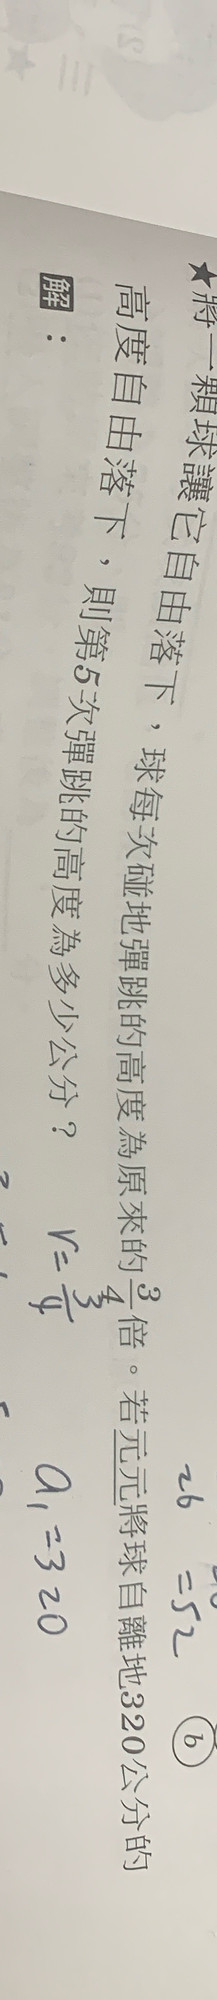 ★將一顆球讓它自由落下，球每次碰地彈跳的高度為原來的3/4倍。若元元將球自離地320公分的
高度自由落下，則第5次彈跳的高度為多少公分？
解：
r=3/4
a₁=320
26
=52
b